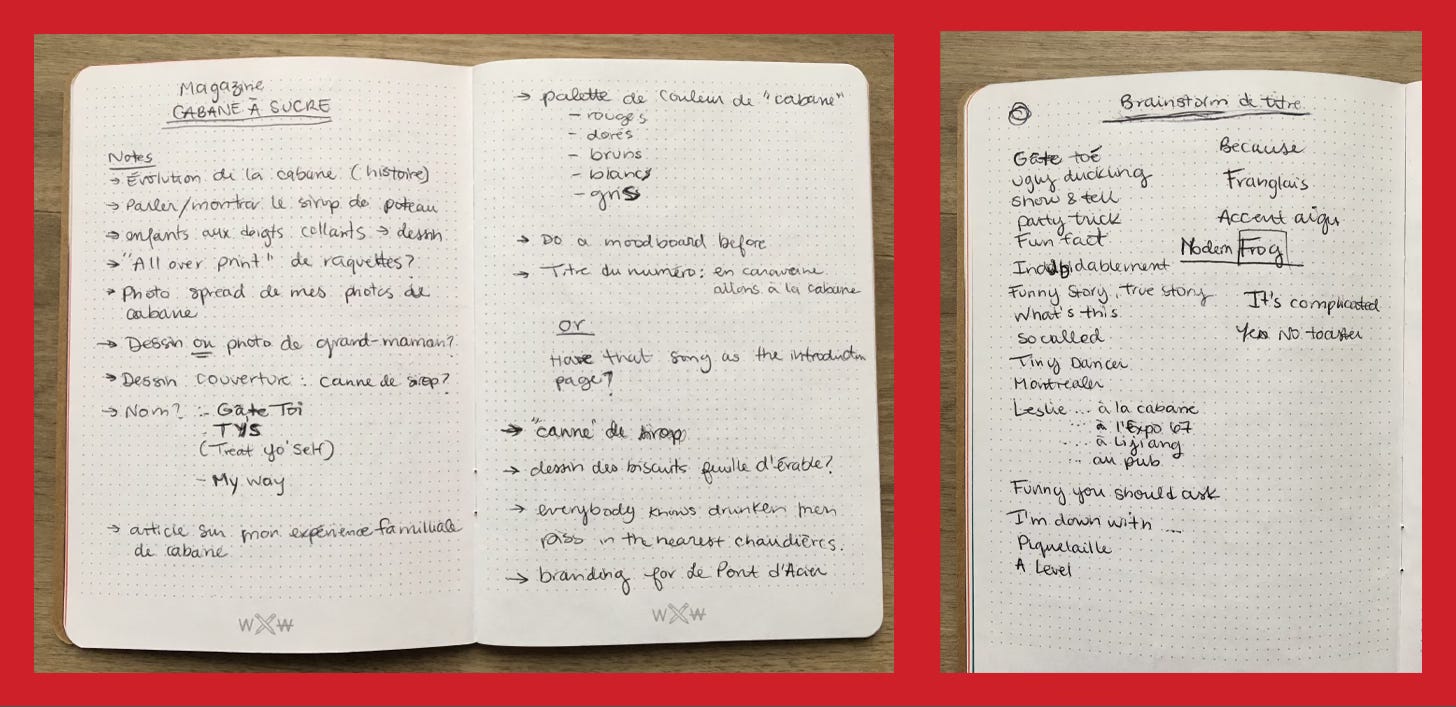 Magazine
CABANE À SUCRE
Notes
→ Évolution de la cabane (histoire)
→ Parler/montrer le sirop de poteau
→ enfants aux doigts collants → dessin
→ "All over print" de raquettes?
→ Photo spread de mes photos de
cabane
→ Dessin ou photo de grand-maman?
→ Dessin couverture : canne de sirop?
→ Nom? :- Gâte Toi
- TYS
(Treat yo'self)
- My way
→ article sur mon expérience familiale
de cabane
WXW
→ palette de couleur de "cabane"
- rouges
- dorés
- bruns
- blancs
- gris
→ Do a moodboard before
→ Titre du numéro: en caravane
allons à la cabane
or
Have that song as the introduction
page?
→ "canne" de sirop
→ dessin des biscuits feuille d'érable?
→ everybody knows drunken men
piss in the nearest chaudières.
→ branding for Le Pont d'Acier
WXW
Brainstorm de titre
Gâte toé
ugly duckling
show & tell
party trick
Fun fact
Indubidablement
Funny Story, true story
What's this
so called
Tiny Dancer
Montrealer
Leslie ... à la cabane
... à l'Expo '67
... à Lijiang
... au pub
Funny you should ask
I'm down with ...
Piquelaille
A Level
Because
Franglais
Accent aigu
Modern Frog
It's complicated
Yes No toaster